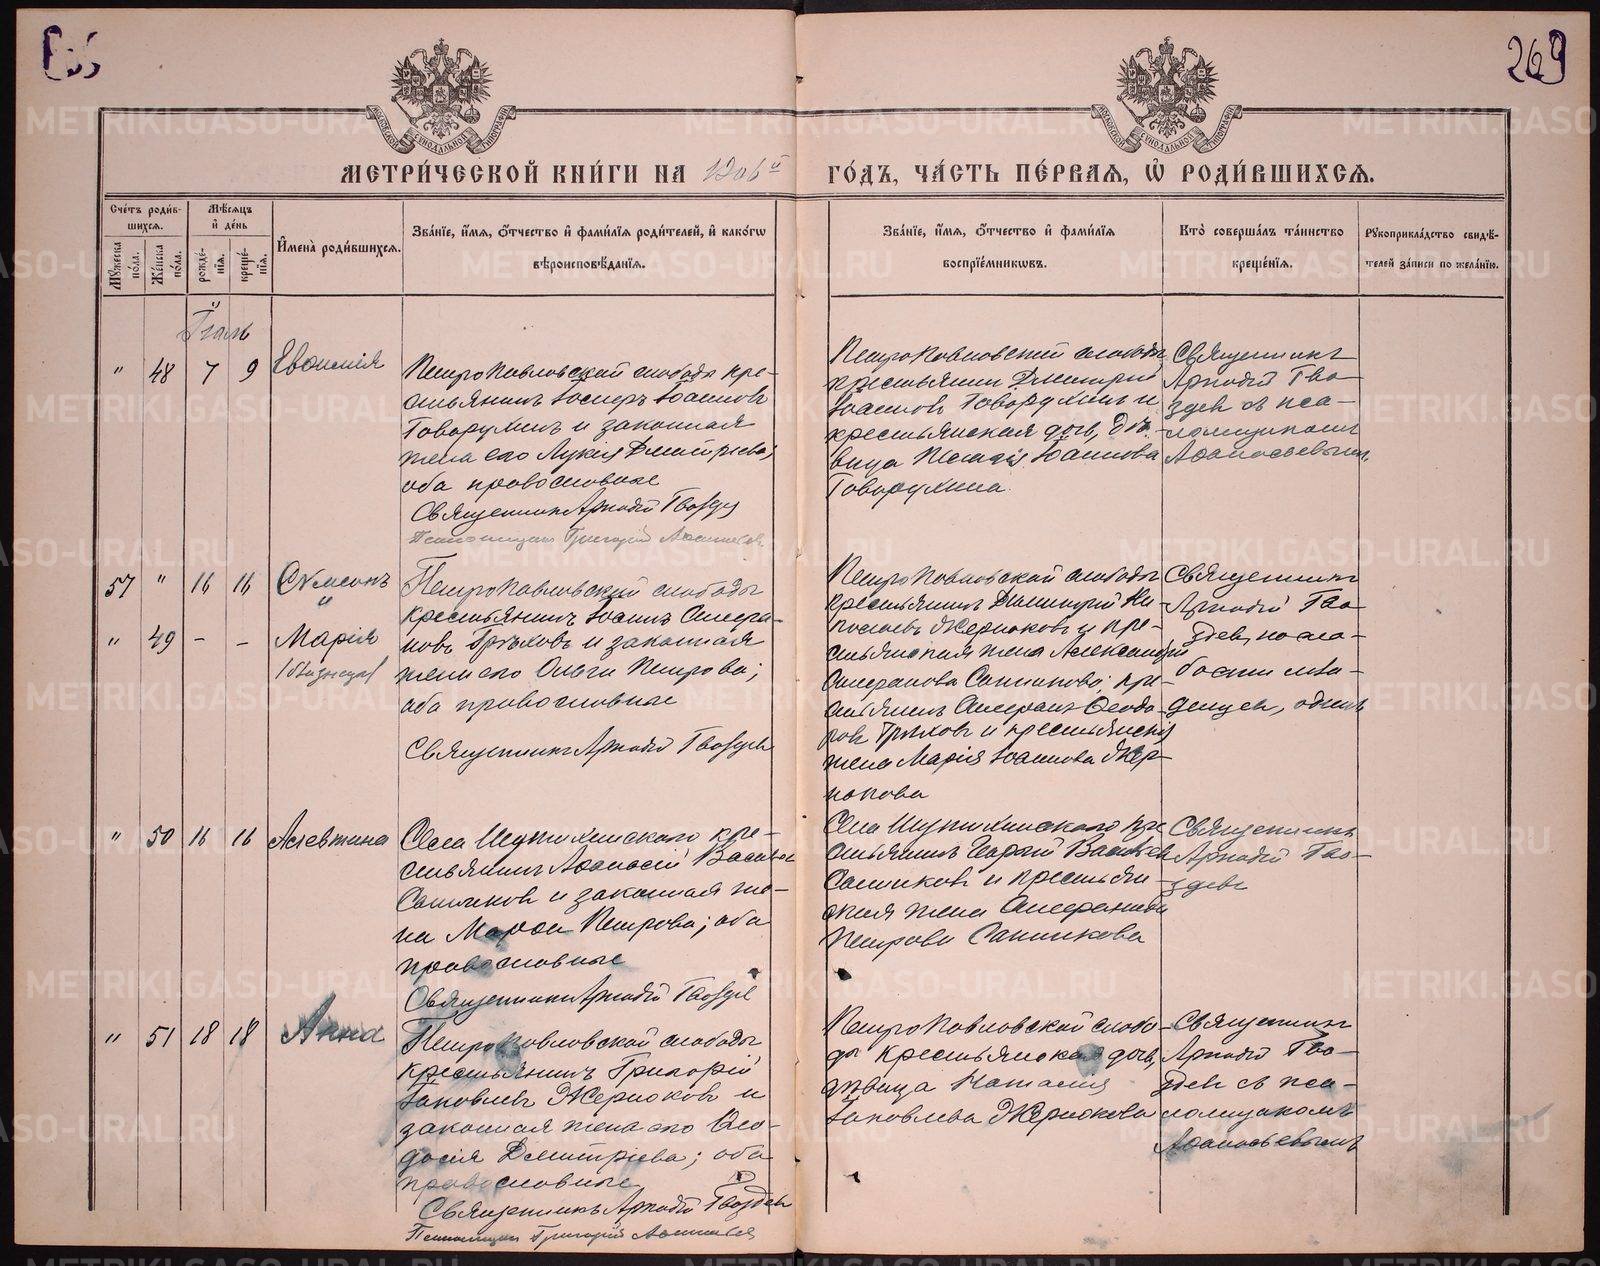 269
МЕТРИ́ЧЕСКОЙ КНИ́ГИ НА 1906 й
ГО́ДЪ, ЧА́СТЬ ПЕ́РВАЯ, Ѡ РОДИ́ВШИХСЯ.
Сче́тъ роди́в-
шихся.
Мꙋ́жеска по́ла.
Же́нска по́ла.
Мѣ́сяцъ
и де́нь
рожде́-
нїя.
креще́-
нїя.
И҆мена̀ роди́вшихся.
Зва́нїе, и҆́мя, ѻ҆́тчество и҆ фамѝлїя роди́телей, и҆ како́гѡ
вѣроисповѣ́данїя.
Зва́нїе, и҆́мя, ѻ҆́тчество и҆ фамѝлїя
воспрїе́мникѡвъ.
Кто̀ соверша́лъ та́инство
креще́нїя.
Рꙋкоприкла́дство свидѣ́-
телей за́писи по жела́нїю.
Іюль
" 48 7 9
Евѳимія
Петропавловской слободы кре-
стьянинъ Іоаннов
Говорухинъ и законная
жена его Лукія Дмитріева;
оба православные
Священникъ Аркадій Гвоздев
Псаломщик Григорій
Петропавловской слободы
крестьянин Дмитрий
Іоаннов Говорухин и
крестьянская дочь, дѣ-
вица Іоаннова
Говорухина
Священникъ
Аркадій Гво-
здев съ пса-
ломщиком
Аѳанасьевымъ
57 " 16 16
Сѵмеонъ
"
" 49 - -
Марія
близнецы
Петропавловской слободы
крестьянинъ Іоаннъ Стефа-
нов Грѣхов и законная
жена его Ольга Петрова;
оба православные
Священникъ Аркадій Гвоздев
Петропавловской слободы
крестьянинъ Димитрій Ни-
Жернаковъ и кре-
стьянская жена Александра
Стефанова Санникова; кре-
стьянинъ Стефанъ Ѳеодо-
ров Грѣхов и крестьянская
жена Марія Іоаннова Жер-
накова
Священникъ
Аркадій Гво-
здев, по сла-
бости мла-
денцев, одинъ
" 50 16 16
Алевтина
Села Шутихинскаго кре-
стьянинъ Аѳанасій Васильев
Санников и законная же-
на Марѳа Петрова; оба
православные
Священникъ Аркадій Гвоздев
Села Шутихинскаго кре-
стьянинъ Георгій Васильев
Санников и крестьян-
ская жена Стефанида
Петрова Санникова
Священникъ
Аркадій Гво-
здевъ
" 51 18 18
Анна
Петропавловской слободы
крестьянинъ Григорій
Іаковлев Жернаков и
законная жена его Ѳео-
досія Дмитріева; оба
православные
Священникъ Аркадій Гвоздев
Псаломщик Григорій
Петропавловской слобо-
ды крестьянская дочь,
дѣвица Наталія
Іаковлева Жернакова
Священникъ
Аркадій Гво-
здев съ пса-
ломщикомъ
Аѳанасьевымъ